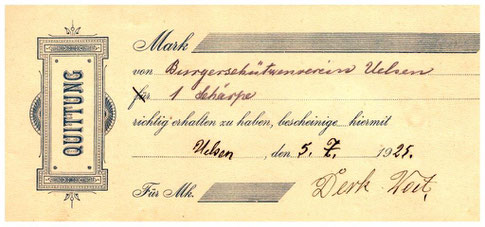 QUITTUNG
Mark
von Bürgerschützenverein Uelsen
für 1 Schärpe
richtig erhalten zu haben, bescheinige hiermit
Uelsen, den 5. 7. 1925.
Für Mk. Derk Voit